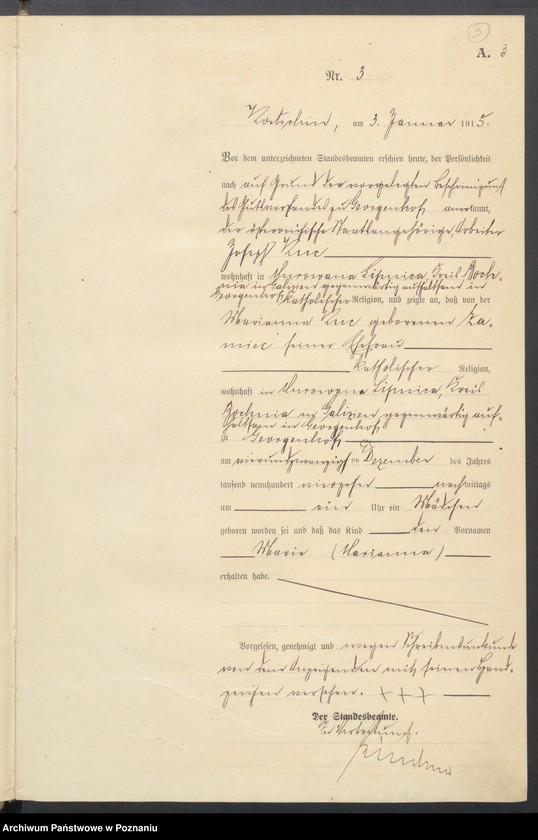 3
A. 3
Nr. 3
Kotschin, am 3. Januar 1915.
Vor dem unterzeichneten Standesbeamten erschien heute, der Persönlichkeit
nach auf Grund der vorgelegten Bescheinigung
des Gutsvorstandes zu Georgenhof anerkannt,
der österreichische Staatsangehörige, Arbeiter
Joseph Kuc
wohnhaft in Murowana Lipnica, Kreis Boch-
nia in Galizien gegenwärtig aufhaltsam in
Georgenhof katholischer Religion, und zeigte an, daß von der
Marianna Kuc geborenen Za-
miec seiner Ehefrau
katholischer Religion,
wohnhaft in Murowana Lipnica, Kreis
Bochnia in Galizien gegenwärtig auf-
haltsam in Georgenhof,
zu Georgenhof
am vierundzwanzigsten Dezember des Jahres
tausend neunhundert vierzehn nachmittags
um ein Uhr ein Mädchen
geboren worden sei und daß das Kind den Vornamen
Marie (Marianna)
erhalten habe.
Vorgelesen, genehmigt und wegen Schreibensunkunde
von dem Anzeigenden mit seinem Hand-
zeichen versehen. +++
Der Standesbeamte.
In Vertretung.
Archiwum Państwowe w Poznaniu